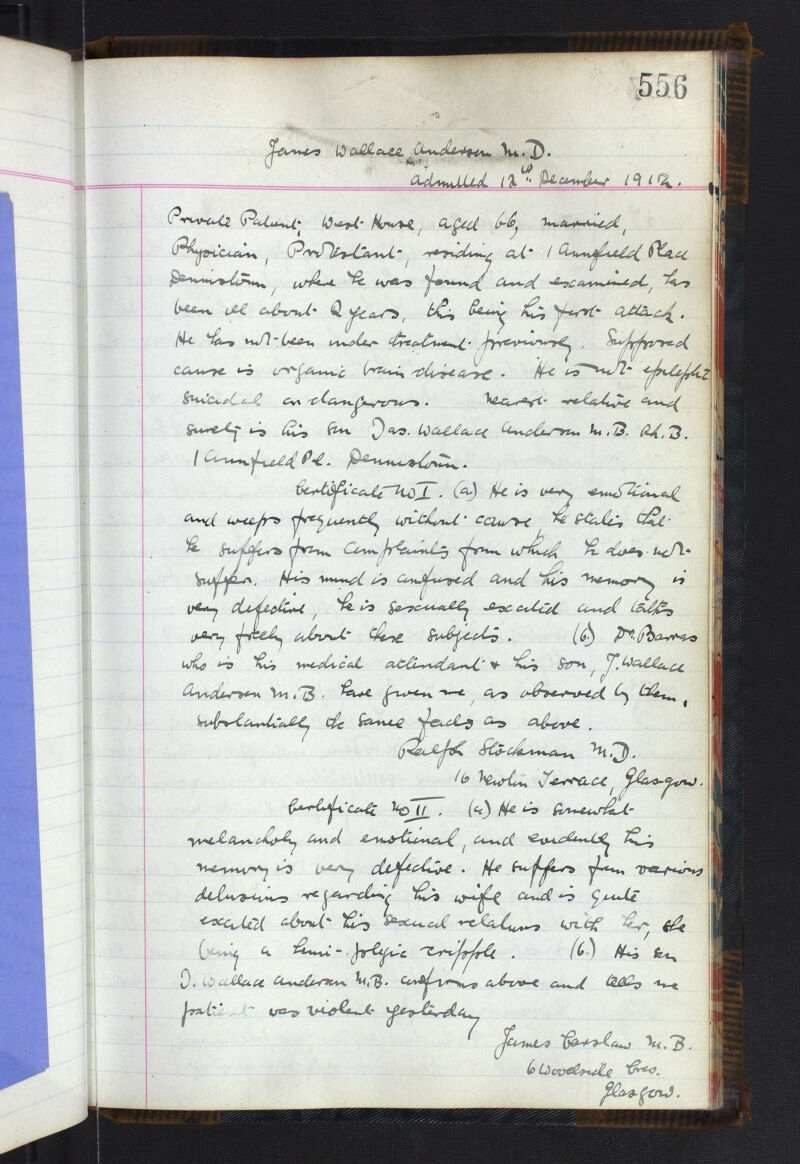 556
James Wallace Anderson M.D.
admitted 12th December 1912.
Private Patient, West House, aged 66, married,
Physician, Protestant, residing at 1 Annfield Place
Dennistoun, where he was found and examined, has
been ill about 2 years, this being his first attack.
He has not been under treatment previously. Supposed
cause is organic brain disease. He is not epileptic
suicidal or dangerous. Nearest relative and
surety is his son Jas. Wallace Anderson M.B. Ch.B.
1 Annfield Pl. Dennistoun.
Certificate No I. (a) He is very emotional
and weeps frequently without cause, he states that
he suffers from complaints from which he does not
suffer. His mind is confused and his memory is
very defective, he is sexually excited and talks
very freely about these subjects. (b) Dr. Barras
who is his medical attendant & his son, J. Wallace
Anderson M.B. have given me, as observed by them,
substantially the same facts as above.
Ralph Stockman M.D.
16 Newton Terrace, Glasgow.
Certificate No II. (a) He is somewhat
melancholy and emotional, and evidently his
memory is very defective. He suffers from various
delusions regarding his wife and is quite
excited about his sexual relations with her, she
being a hemi-plegic cripple. (b) His son
J. Wallace Anderson M.B. confirms above and tells me
patient was violent yesterday
James Carslaw M.B.
6 Woodside Cres.
Glasgow.